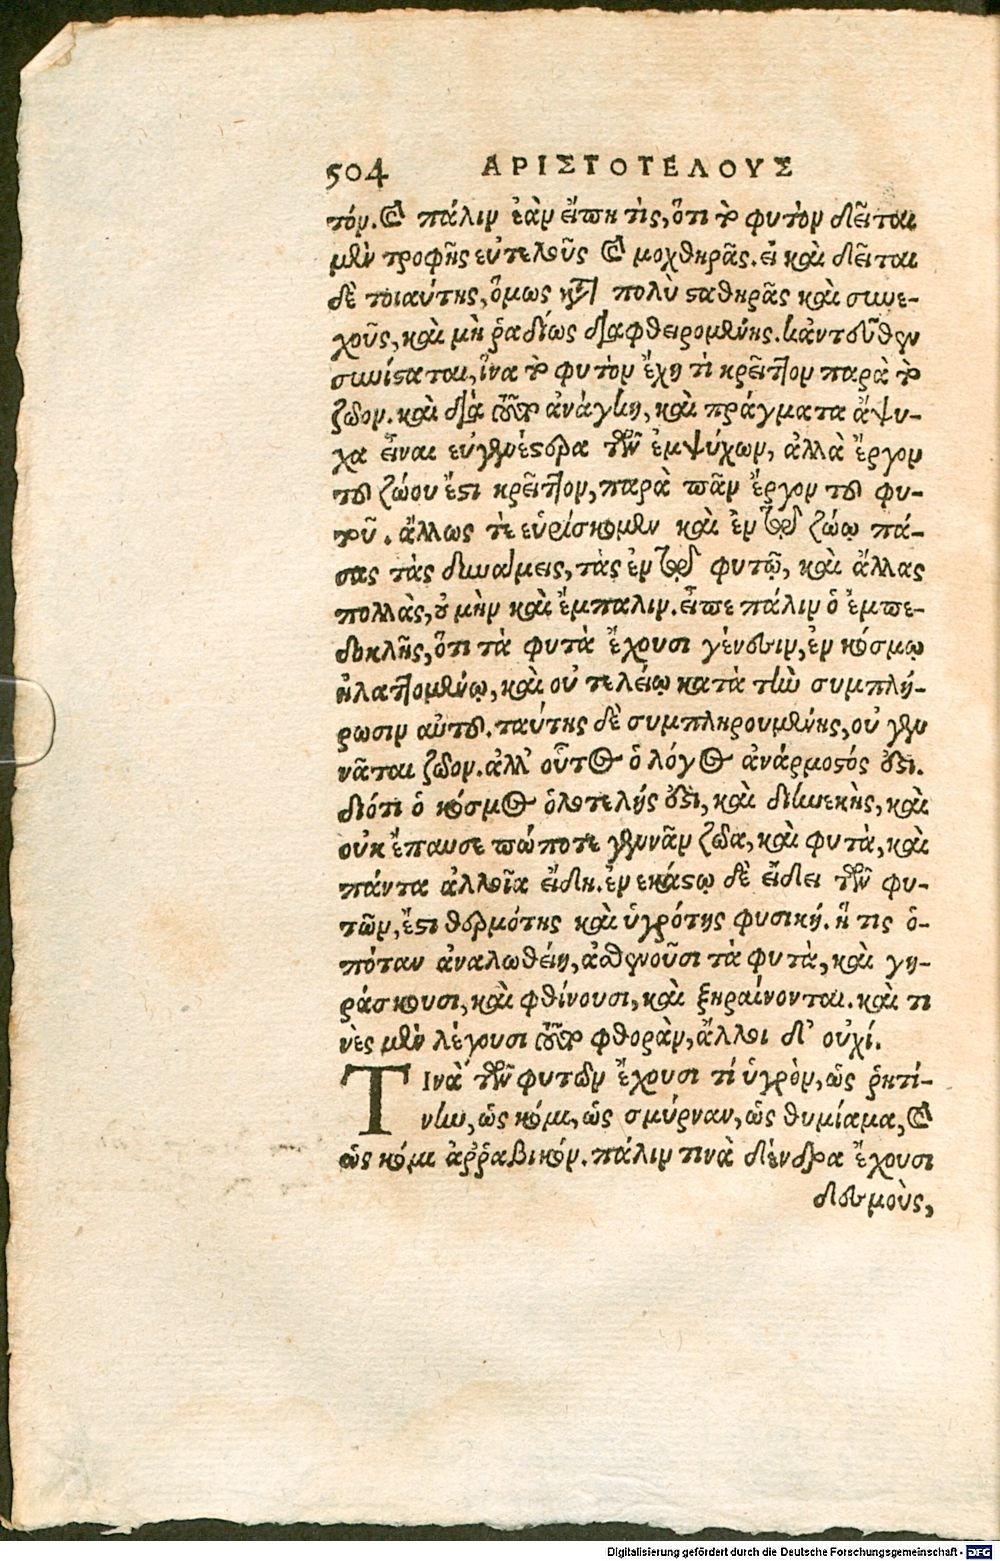 504 ΑΡΙΣΤΟΤΕΛΟΥΣ
τόν. καὶ πάλιν ἐὰν εἴπη τὶς, ὅτι τὸ φυτὸν δεῖται
μὲν τροφῆς εὐτελοῦς καὶ μοχθηρᾶς. εἰ καὶ δεῖται
δὲ τοιαύτης, ὅμως κατὰ πολὺ σαθηρᾶς καὶ συνε-
χοῦς, καὶ μὴ ῥαδίως διαφθειρομένης. κἀντεῦθεν
συνίσαται, ἵνα τὸ φυτὸν ἔχη τὶ κρεῖττον παρὰ τὸ
ζῶον. καὶ διὰ τοῦτο ἀνάγκη, καὶ πράγματα ἄψυ-
χα εἶναι εὐγενέστερα τῶν ἐμψύχων, ἀλλὰ ἔργον
τοῦ ζώου ἔστι κρεῖττον, παρὰ πᾶν ἔργον τοῦ φυ-
τοῦ. ἄλλως τὲ εὑρίσκομεν καὶ ἐν τῷ ζώῳ πά-
σας τὰς δυνάμεις, τὰς ἐν τῷ φυτῷ, καὶ ἄλλας
πολλὰς, οὐ μὴν καὶ ἔμπαλιν. εἶπε πάλιν ὁ ἐμπε-
δοκλῆς, ὅτι τὰ φυτὰ ἔχουσι γένεσιν, ἐν κόσμῳ
ἠλαττομένῳ, καὶ οὐ τελείῳ κατὰ τὴν συμπλή-
ρωσιν αὐτοῦ. ταύτης δὲ συμπληρουμένης, οὐ γεν
νᾶται ζῶον. ἀλλ' οὗτος ὁ λόγος ἀνάρμοστός ἐστι.
διότι ὁ κόσμος ὁλοτελής ἐστι, καὶ διηνεκὴς, καὶ
οὐκ ἔπαυσε πώποτε γεννᾶν ζῶα, καὶ φυτὰ, καὶ
πάντα ἀλλοῖα εἴδη. ἐν εκάστῳ δὲ εἴδει τῶν φυ-
τῶν, ἔστι θερμότης καὶ ὑγρότης φυσική. ἥ τις ὁ-
πόταν ἀναλωθείη, ἀσθενοῦσι τὰ φυτὰ, καὶ γη-
ράσκουσι, καὶ φθίνουσι, καὶ ξηραίνονται. καὶ τι
νὲς μὲν λέγουσι τοῦτο φθορὰν, ἄλλοι δ' οὐχί.
ΤΙνὰ τῶν φυτῶν ἔχουσι τί ὑγρὸν, ὡς ῥητί-
νην, ὡς κόμι, ὡς σμύρναν, ὡς θυμίαμα, καὶ
ὡς κόμι ἀῤῥαβικόν. πάλιν τινὰ δένδρα ἔχουσι
δεσμοὺς,
Digitalisierung gefördert durch die Deutsche Forschungsgemeinschaft - DFG